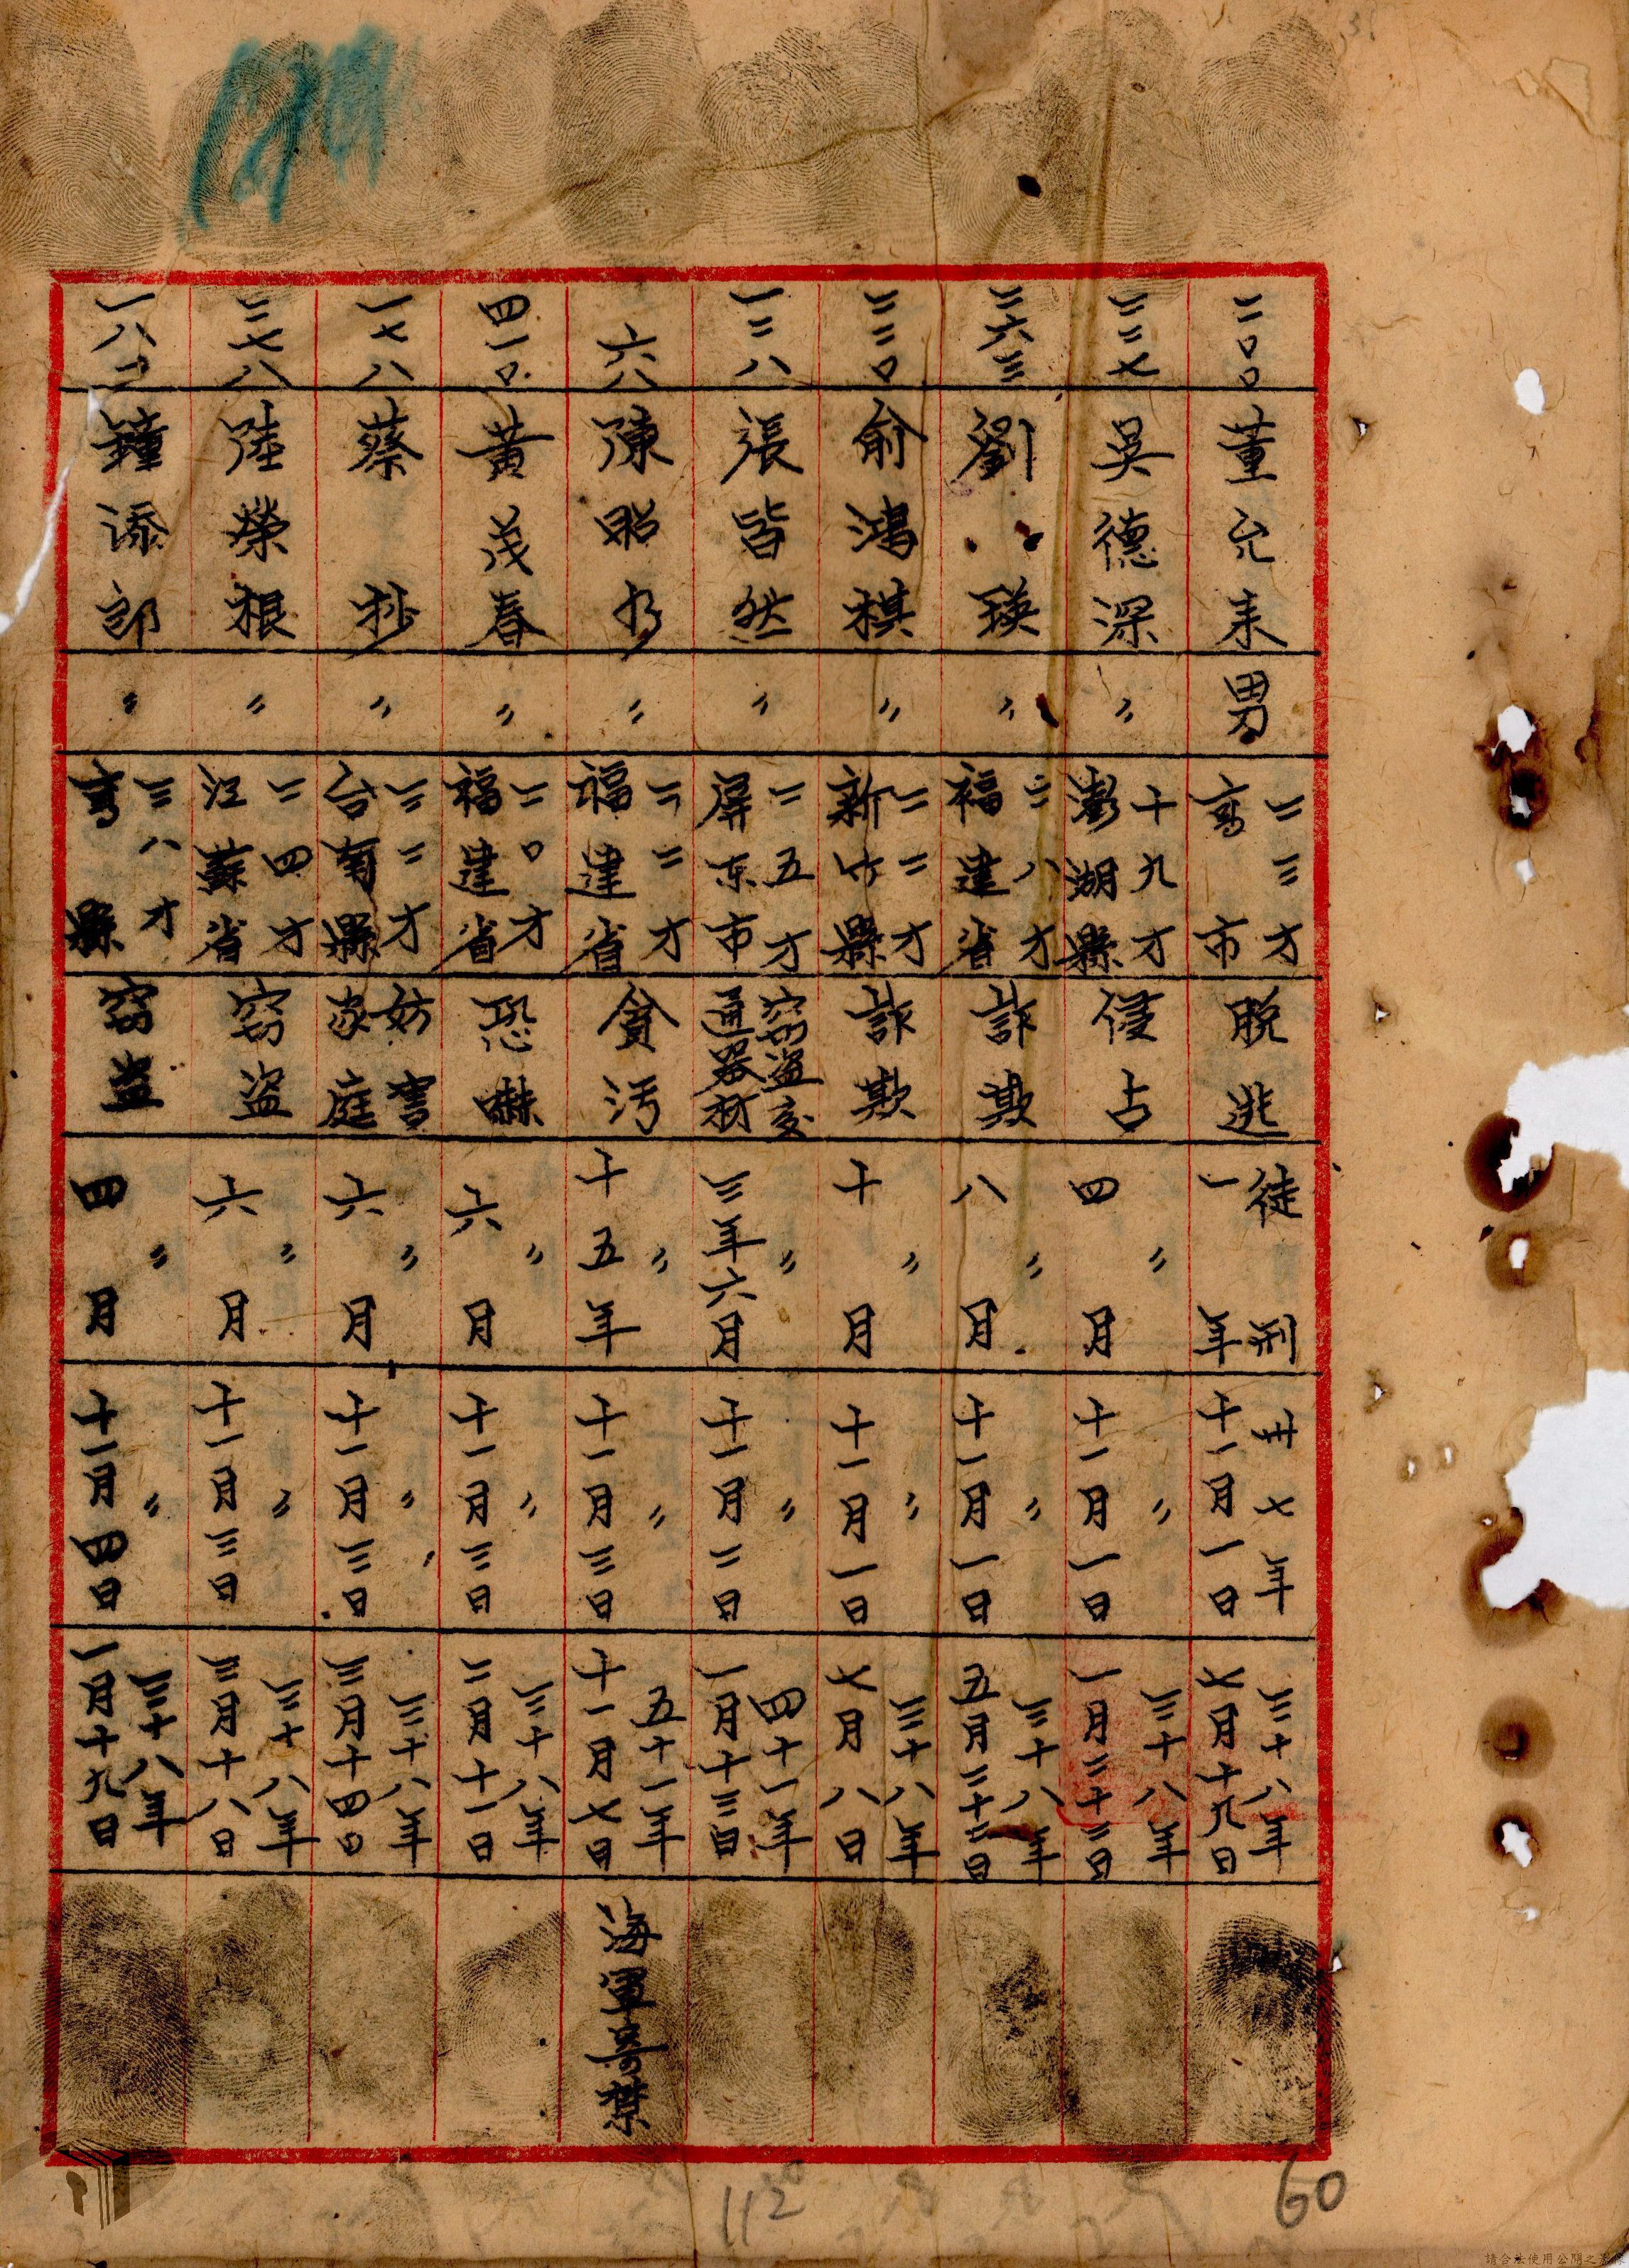 二〇〇 董允来 男 二三才 高市 脫逃 徒刑 一年 卅七年 十一月一日 三十八年 七月十九日
三三七 吳德深 〃 十九才 澎湖縣 侵占 〃 四月 〃 十一月一日 三十八年 一月二十三日
三六三 劉瑛 〃 二八才 福建省 詐欺 〃 八月 〃 十一月一日 三十八年 五月二十二日
三二〇 俞鴻棋 〃 二二才 新竹縣 詐欺 〃 十月 〃 十一月一日 三十八年 七月八日
一三八 張皆然 〃 二五才 屏东市 窃盜交通器材 〃 三年六月 〃 十一月二日 四十一年 一月十三日
六八 陳昭水 〃 二二才 福建省 貪污 〃 十五年 〃 十一月三日 五十一年 十一月七日 海軍寄禁
四一〇 黃茂春 〃 二〇才 福建省 恐嚇 〃 六月 〃 十一月三日 三十八年 二月十一日
一七八 蔡抄 〃 三二才 台南縣 妨害家庭 〃 六月 〃 十一月三日 三十八年 三月十四日
三七八 陸榮根 〃 二四才 江蘇省 窃盜 〃 六月 〃 十一月三日 三十八年 三月十八日
鐘添郎 〃 三八才 高縣 窃盜 〃 四月 〃 十一月四日 三十八年 一月十九日
112
60
請合法使用公開之影像